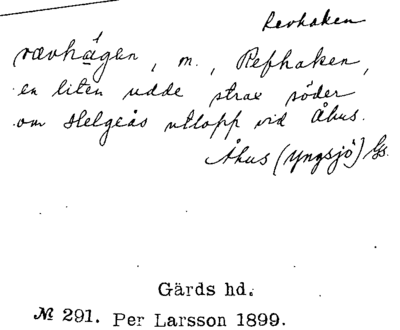 Revhaken
rævhågen, m., Refhaken,
en liten udde strax söder
om Helgeås utlopp vid Åhus.
Åhus (Yngsjö) Gs.
Gärds hd.
№ 291. Per Larsson 1899.